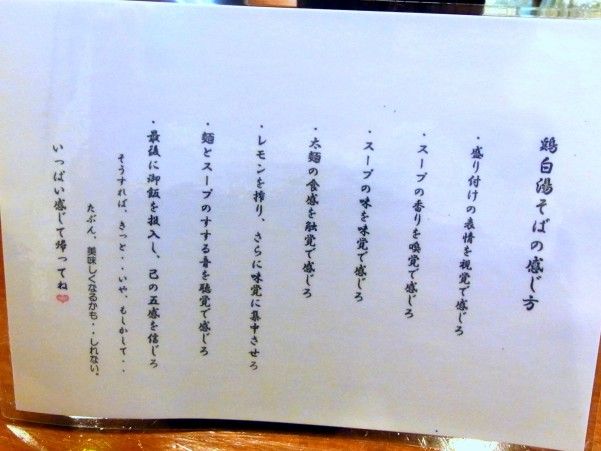 鶏白湯そばの感じ方
・盛り付けの表情を視覚で感じろ
・スープの香りを嗅覚で感じろ
・スープの味を味覚で感じろ
・太麺の食感を触覚で感じろ
・レモンを搾り、さらに味覚に集中させろ
・麺とスープのすする音を聴覚で感じろ
・最後に御飯を投入し、己の五感を信じろ
そうすれば、きっと・・・いや、もしかして・・
たぶん、美味しくなるかも・・しれない。
いっぱい感じて帰ってね